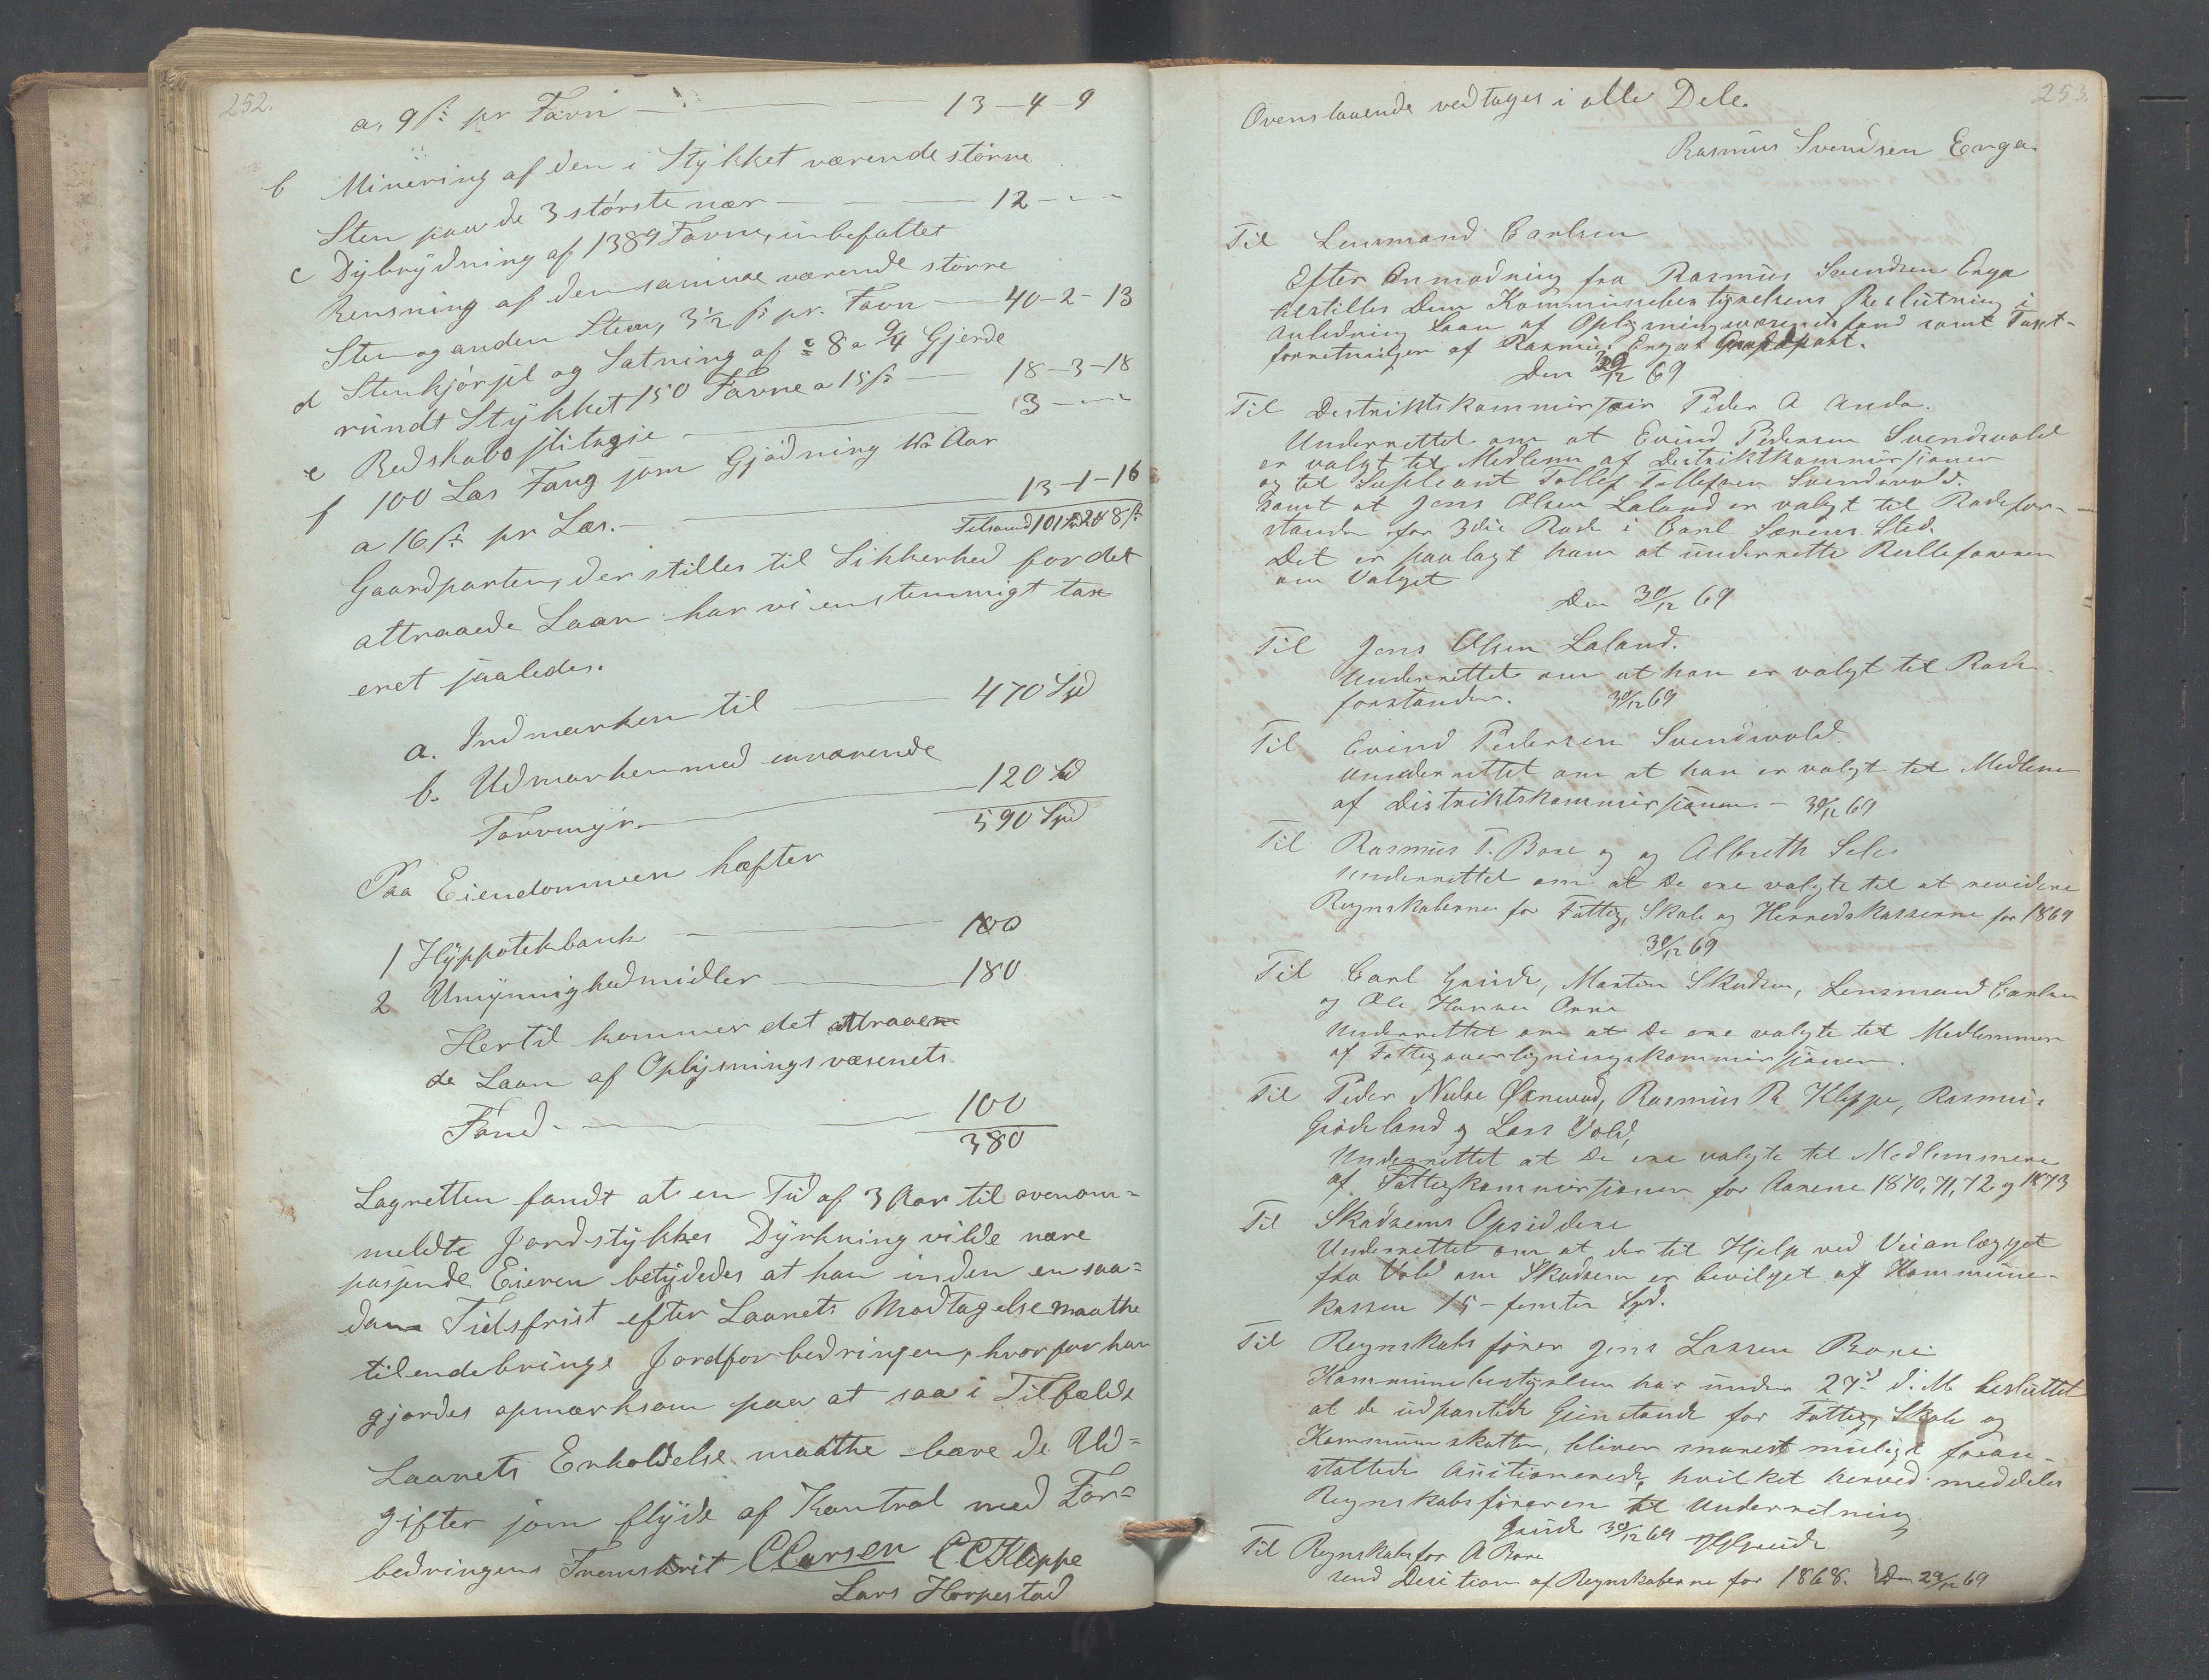 252.
a, 9 ſs pr Favn — 13 – 4 – 9
b Minering af den i Stykket værende större
Sten paa de 3 störste nær — 12 – – –
c Dybrydning af 1389 Favne, inbefattet
Rensning af den samme værende större
Sten og anden Sten, 3½ ſs pr. Favn — 40 – 2 – 13
d Stenkjörsel og Sætning af 8 a 9/4 Gjerde
rundt Stykket 150 Favne a 15 ſs — 18 – 3 – 18
e Redskabsslitagie — 3 – – –
f 100 Læs Tang som Gjödning 1ste Aar
a 16 ſs pr Læs. — 13 – 1 – 16
Tilsamd 101 Spd 2 8 ſs
Gaardparten, der stilles til Sikkerhed for det
attraaede Laan har vi enstemmigt tax
eret saaledes.
a. Indmarken til — 470 Spd
b. Udmarken med iværende
Torvmyr. — 120 Sd
590 Spd
Paa Eiendommen hæfter
1 Hyppotekbank — 100
2 Umyndighedmidler — 180
Hertil kommer det attraae
de Laan af Oplysningsvæsenets
Fond — 100
380
Lagretten fandt at en Tid af 3 Aar til ovenom=
meldte Jordstykkes Dyrkning vilde være
passende Eieren betydedes at han inden en saa=
dan Tidsfrist efter Laanets Modtagelse maatte
tilendebringe Jordforbedringen, hvorfor han
gjordes opmærksom paa at saa i Tilfælde
Laanets Erholdelse maatte bære de Ud=
gifter som flyde af Kontrol med For=
bedringens Fremskrit CCarsen CCKleppe
Lars Horpestad
253.
Ovenstaaende vedtages i alle Dele.
Rasmus Svendsen Enga
Til Lensmand Carlsen
Efter Anmodning fra Rasmus Svendsen Enga
tilstilles Dem Kommunebestyrelsens Beslutning i
anledning Laan af Oplysningsvæsenets fond samt Taxt-
forretningen af Rasmus Engas Gaardpart.
Den 30/12 69
Til Distriktskommissair Peder A Anda.
Underrettet om at Evind Pedersen Svendsvold
er valgt til Medlem af Distriktkommissionen
og til Supleant Tollef Tollefsen Svendsvold.
samt at Jens Olsen Laland er valgt til Rodefor-
stander for 3die Rode i Carl Særens Sted.
Det er paalagt ham at underrette Rulleföreren
om Valget
Den 30/12 69
Til Jens Olsen Laland.
Underrettet om at han er valgt til Rode
forstander. 30/12 69
Til Evind Pedersen Svendsvold
Underrettet om at han er valgt til Medlem
af Distriktskommissionen. – 30/12 69
Til Rasmus T. Bore og og Albreth Sele
Underrettet om at De ere valgte til at revidere
Regnskaberne for Fattig, Skole og Herredskasserne for 1869
30/12 69
Til Carl Grude, Morten Skadsem, Lensmand Carlsen
og Ole Hansen Orre
Underrettet om at De ere valgte til Medlemmer
af Fattigoverligningskommissionen.
Til Peder Nielse Öxnevad, Rasmus R Kleppe, Rasmus
Grödeland og Lars Vold,
Underrettet at De ere valgte til Medlemmere
af Fattigkommissionen for Aarene 1870, 71, 72 og 1873
Til Skadsems Opsiddere
Underrettet om at der til Hjelp ved Veianlægget
fra Vold om Skadsem er bevilget af Kommune-
kassen 15 – femten Spd.
Til Regnskabsförer Jens Larsen Bore
Kommunebestyrelsen har under 27d d. M. besluttet
at de udpantede Gjenstande for Fattig, Skole og
Kommuneskatten, bliver snarest muligt foran-
staltede Auktionerede, hvilket herved meddeles
Regnskabsföreren til Underretning
Grude 30/12 69 HGrude
Til Regnskabsför A Bore
send Desition af Regnskaberne for 1868. Den 29/12 69